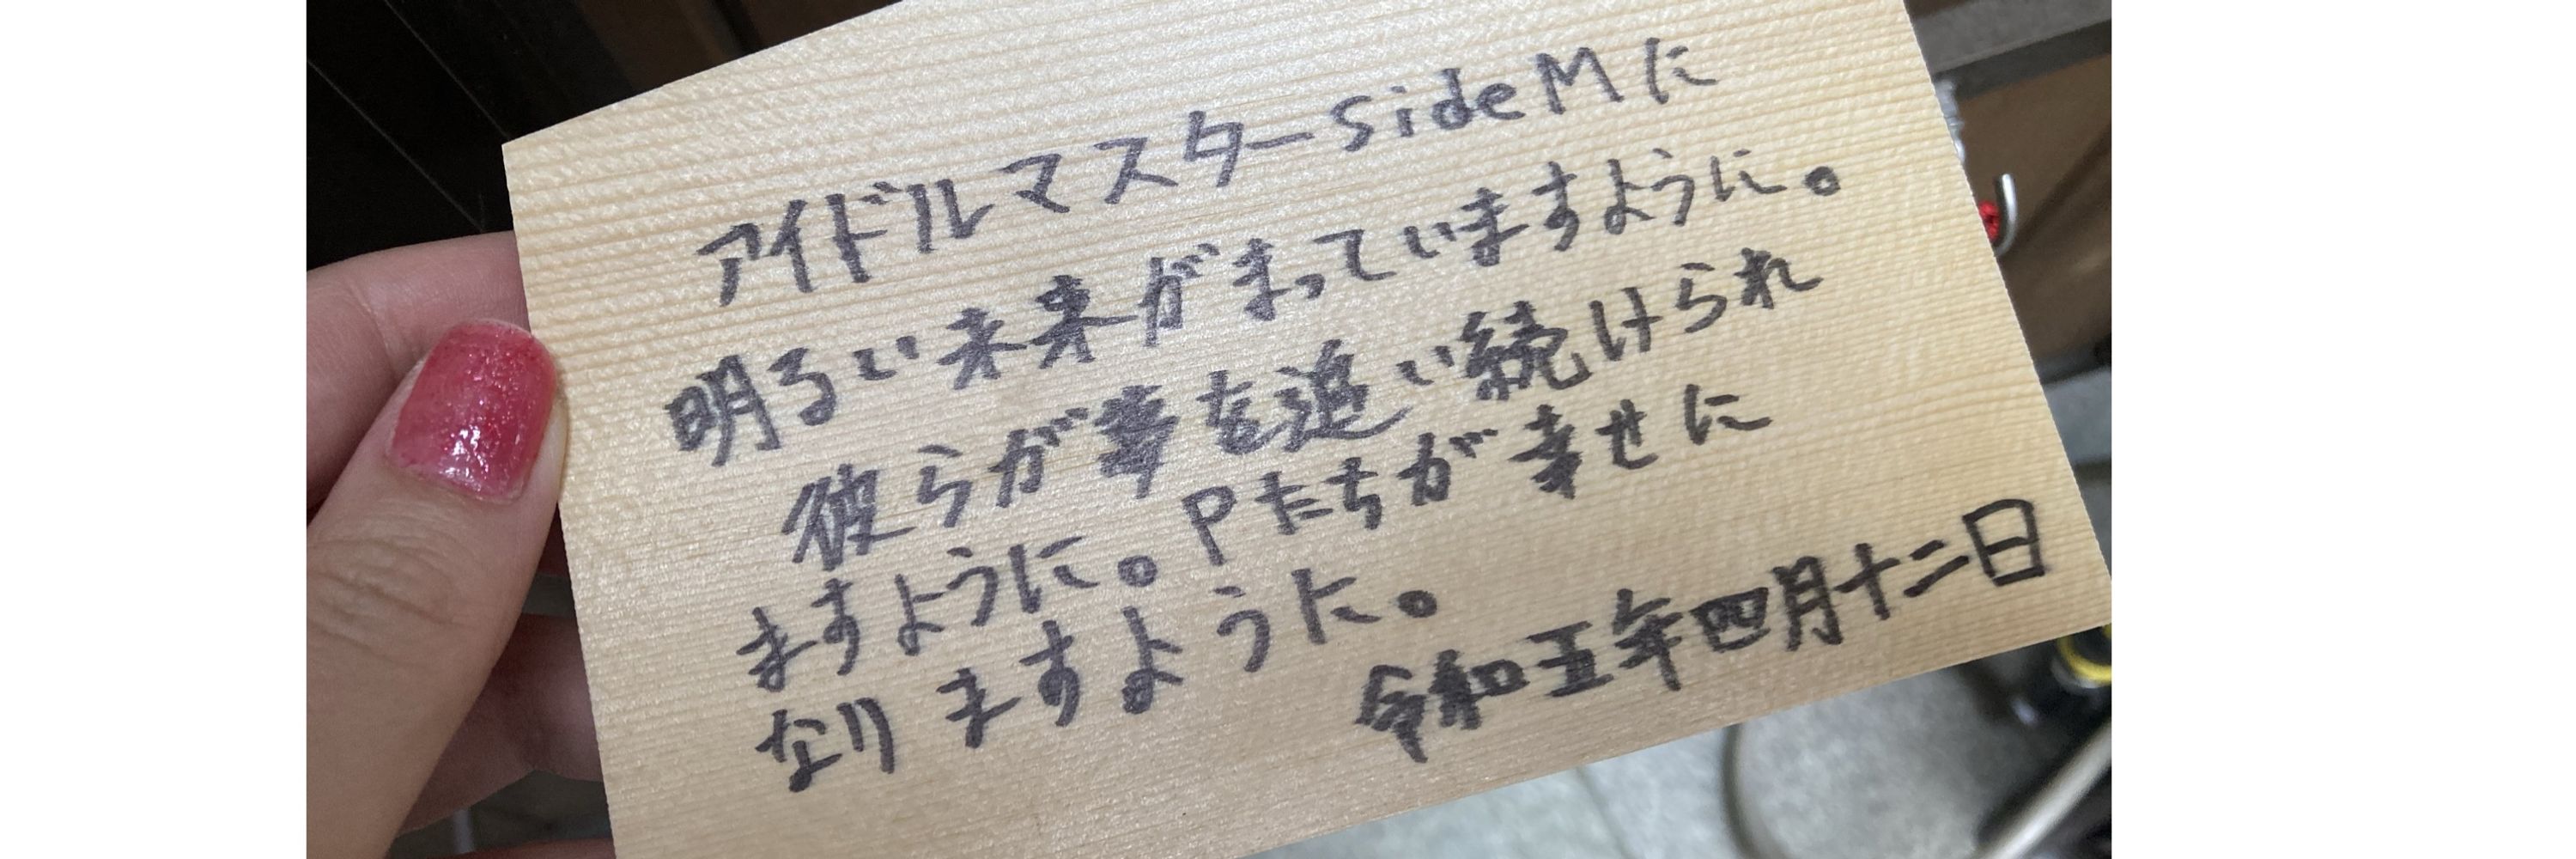 アイドルマスターsideMに
明るい未来がまっていますように。
彼らが幸を追い続けられ
ますように。Pたちが幸せに
なりますように。
令和五年四月十二日